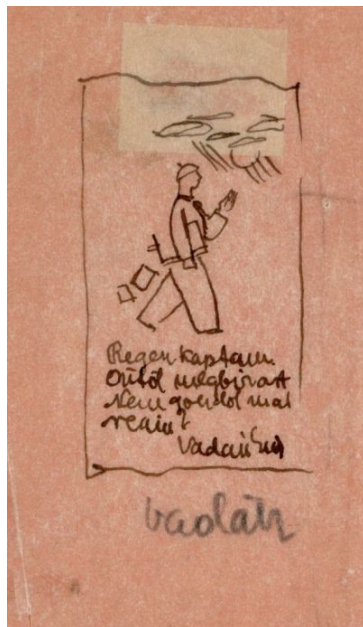 Regen kaptam
Öntől megbizást
Nem gondol mar
reám?
Vadász
Vadász